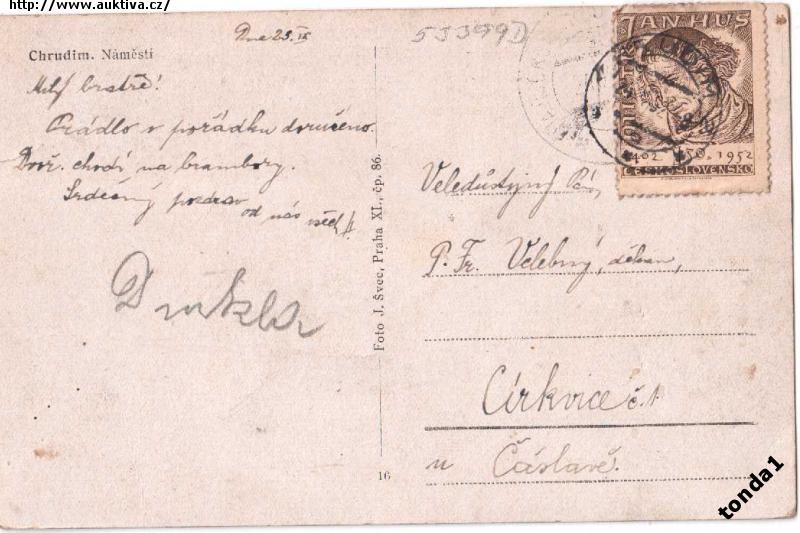 http://www.auktiva.cz/
Dne 25. IX
5JJ99D
Chrudim. Náměstí
Milý bratře!
Prádlo v pořádku doručeno.
chodí na brambory.
Srdečný pozdrav
od nás všech
Foto J. Švec, Praha XI., čp. 86.
16
JAN HUS
1402 1952
ČESKOSLOVENSKO
Veledůstojný Pán,
P. Fr. Velebný, děkan,
Církvice č.1
u Čáslavě.
tonda1